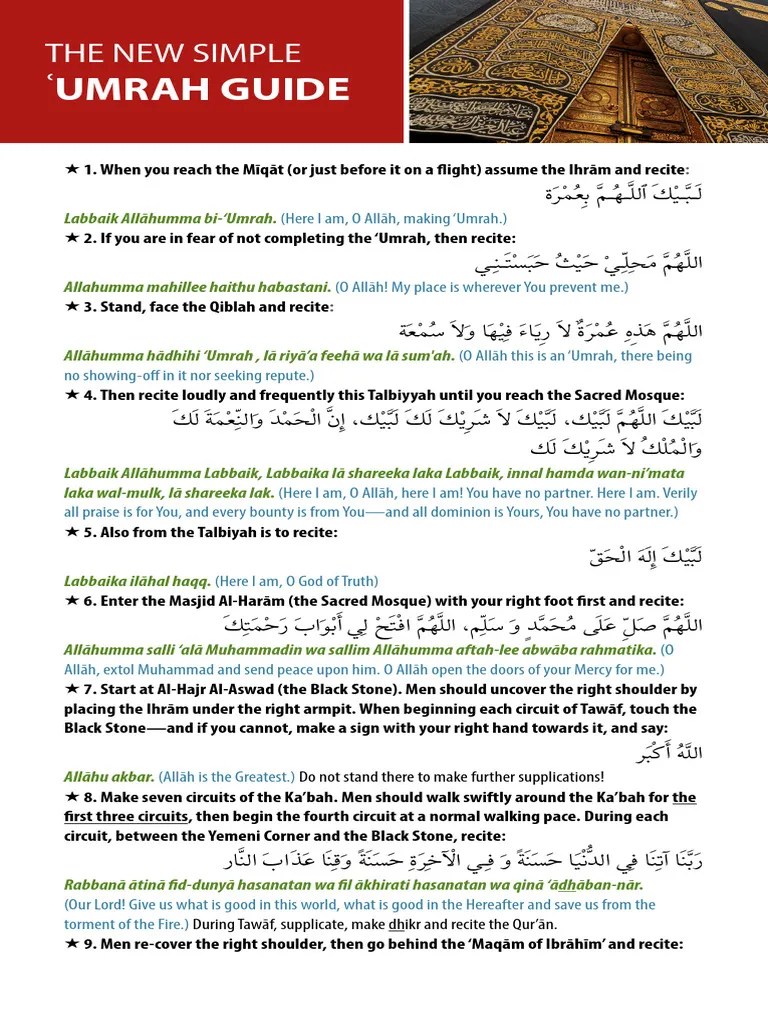 THE NEW SIMPLE
ʿUMRAH GUIDE
★ 1. When you reach the Mīqāt (or just before it on a flight) assume the Ihrām and recite:
لَـبَّـيْـكَ ٱللَّـهُـمَّ بِعُمْرَة
Labbaik Allāhumma bi-‘Umrah. (Here I am, O Allāh, making ‘Umrah.)
★ 2. If you are in fear of not completing the ‘Umrah, then recite:
اللَّهُمَّ مَحِلِّيْ حَيْثُ حَبَسْتَـنِـي
Allahumma mahillee haithu habastani. (O Allāh! My place is wherever You prevent me.)
★ 3. Stand, face the Qiblah and recite:
اللَّهُمَّ هَذِهِ عُمْرَةٌ لاَ رِيَاءَ فِيْهَا وَلاَ سُمْعَة
Allāhumma hādhihi ‘Umrah , lā riyā’a feehā wa lā sum'ah. (O Allāh this is an ‘Umrah, there being
no showing-off in it nor seeking repute.)
★ 4. Then recite loudly and frequently this Talbiyyah until you reach the Sacred Mosque:
لَبَّيْكَ اللَّهُمَّ لَبَّيْكَ، لَبَّيْكَ لاَ شَرِيْكَ لَكَ لَبَّيْكَ، إِنَّ الْحَمْدَ وَالنِّعْمَةَ لَكَ
وَالْمُلْكُ لاَ شَرِيْكَ لَك
Labbaik Allāhumma Labbaik, Labbaika lā shareeka laka Labbaik, innal hamda wan-ni’mata
laka wal-mulk, lā shareeka lak. (Here I am, O Allāh, here I am! You have no partner. Here I am. Verily
all praise is for You, and every bounty is from You—and all dominion is Yours, You have no partner.)
★ 5. Also from the Talbiyah is to recite:
لَبَّيْكَ إِلَهَ الْحَقّ
Labbaika ilāhal haqq. (Here I am, O God of Truth)
★ 6. Enter the Masjid Al-Harām (the Sacred Mosque) with your right foot first and recite:
اللَّهُمَّ صَلِّ عَلَى مُحَمَّدٍ وَ سَلِّم، اللَّهُمَّ افْتَحْ لِي أَبْوَابَ رَحْمَتِكَ
Allāhumma salli ‘alā Muhammadin wa sallim Allāhumma aftah-lee abwāba rahmatika. (O
Allāh, extol Muhammad and send peace upon him. O Allāh open the doors of your Mercy for me.)
★ 7. Start at Al-Hajr Al-Aswad (the Black Stone). Men should uncover the right shoulder by
placing the Ihrām under the right armpit. When beginning each circuit of Tawāf, touch the
Black Stone—and if you cannot, make a sign with your right hand towards it, and say:
اللَّهُ أَكْبَر
Allāhu akbar. (Allāh is the Greatest.) Do not stand there to make further supplications!
★ 8. Make seven circuits of the Ka’bah. Men should walk swiftly around the Ka’bah for the
first three circuits, then begin the fourth circuit at a normal walking pace. During each
circuit, between the Yemeni Corner and the Black Stone, recite:
رَبَّنَا آتِنَا فِي الدُّنْيَا حَسَنَةً وَ فِـي الْآخِرَةِ حَسَنَةً وَقِنَا عَذَابَ النَّار
Rabbanā ātinā fid-dunyā hasanatan wa fil ākhirati hasanatan wa qinā ‘ādhāban-nār.
(Our Lord! Give us what is good in this world, what is good in the Hereafter and save us from the
torment of the Fire.) During Tawāf, supplicate, make dhikr and recite the Qur’ān.
★ 9. Men re-cover the right shoulder, then go behind the ‘Maqām of Ibrāhīm’ and recite: